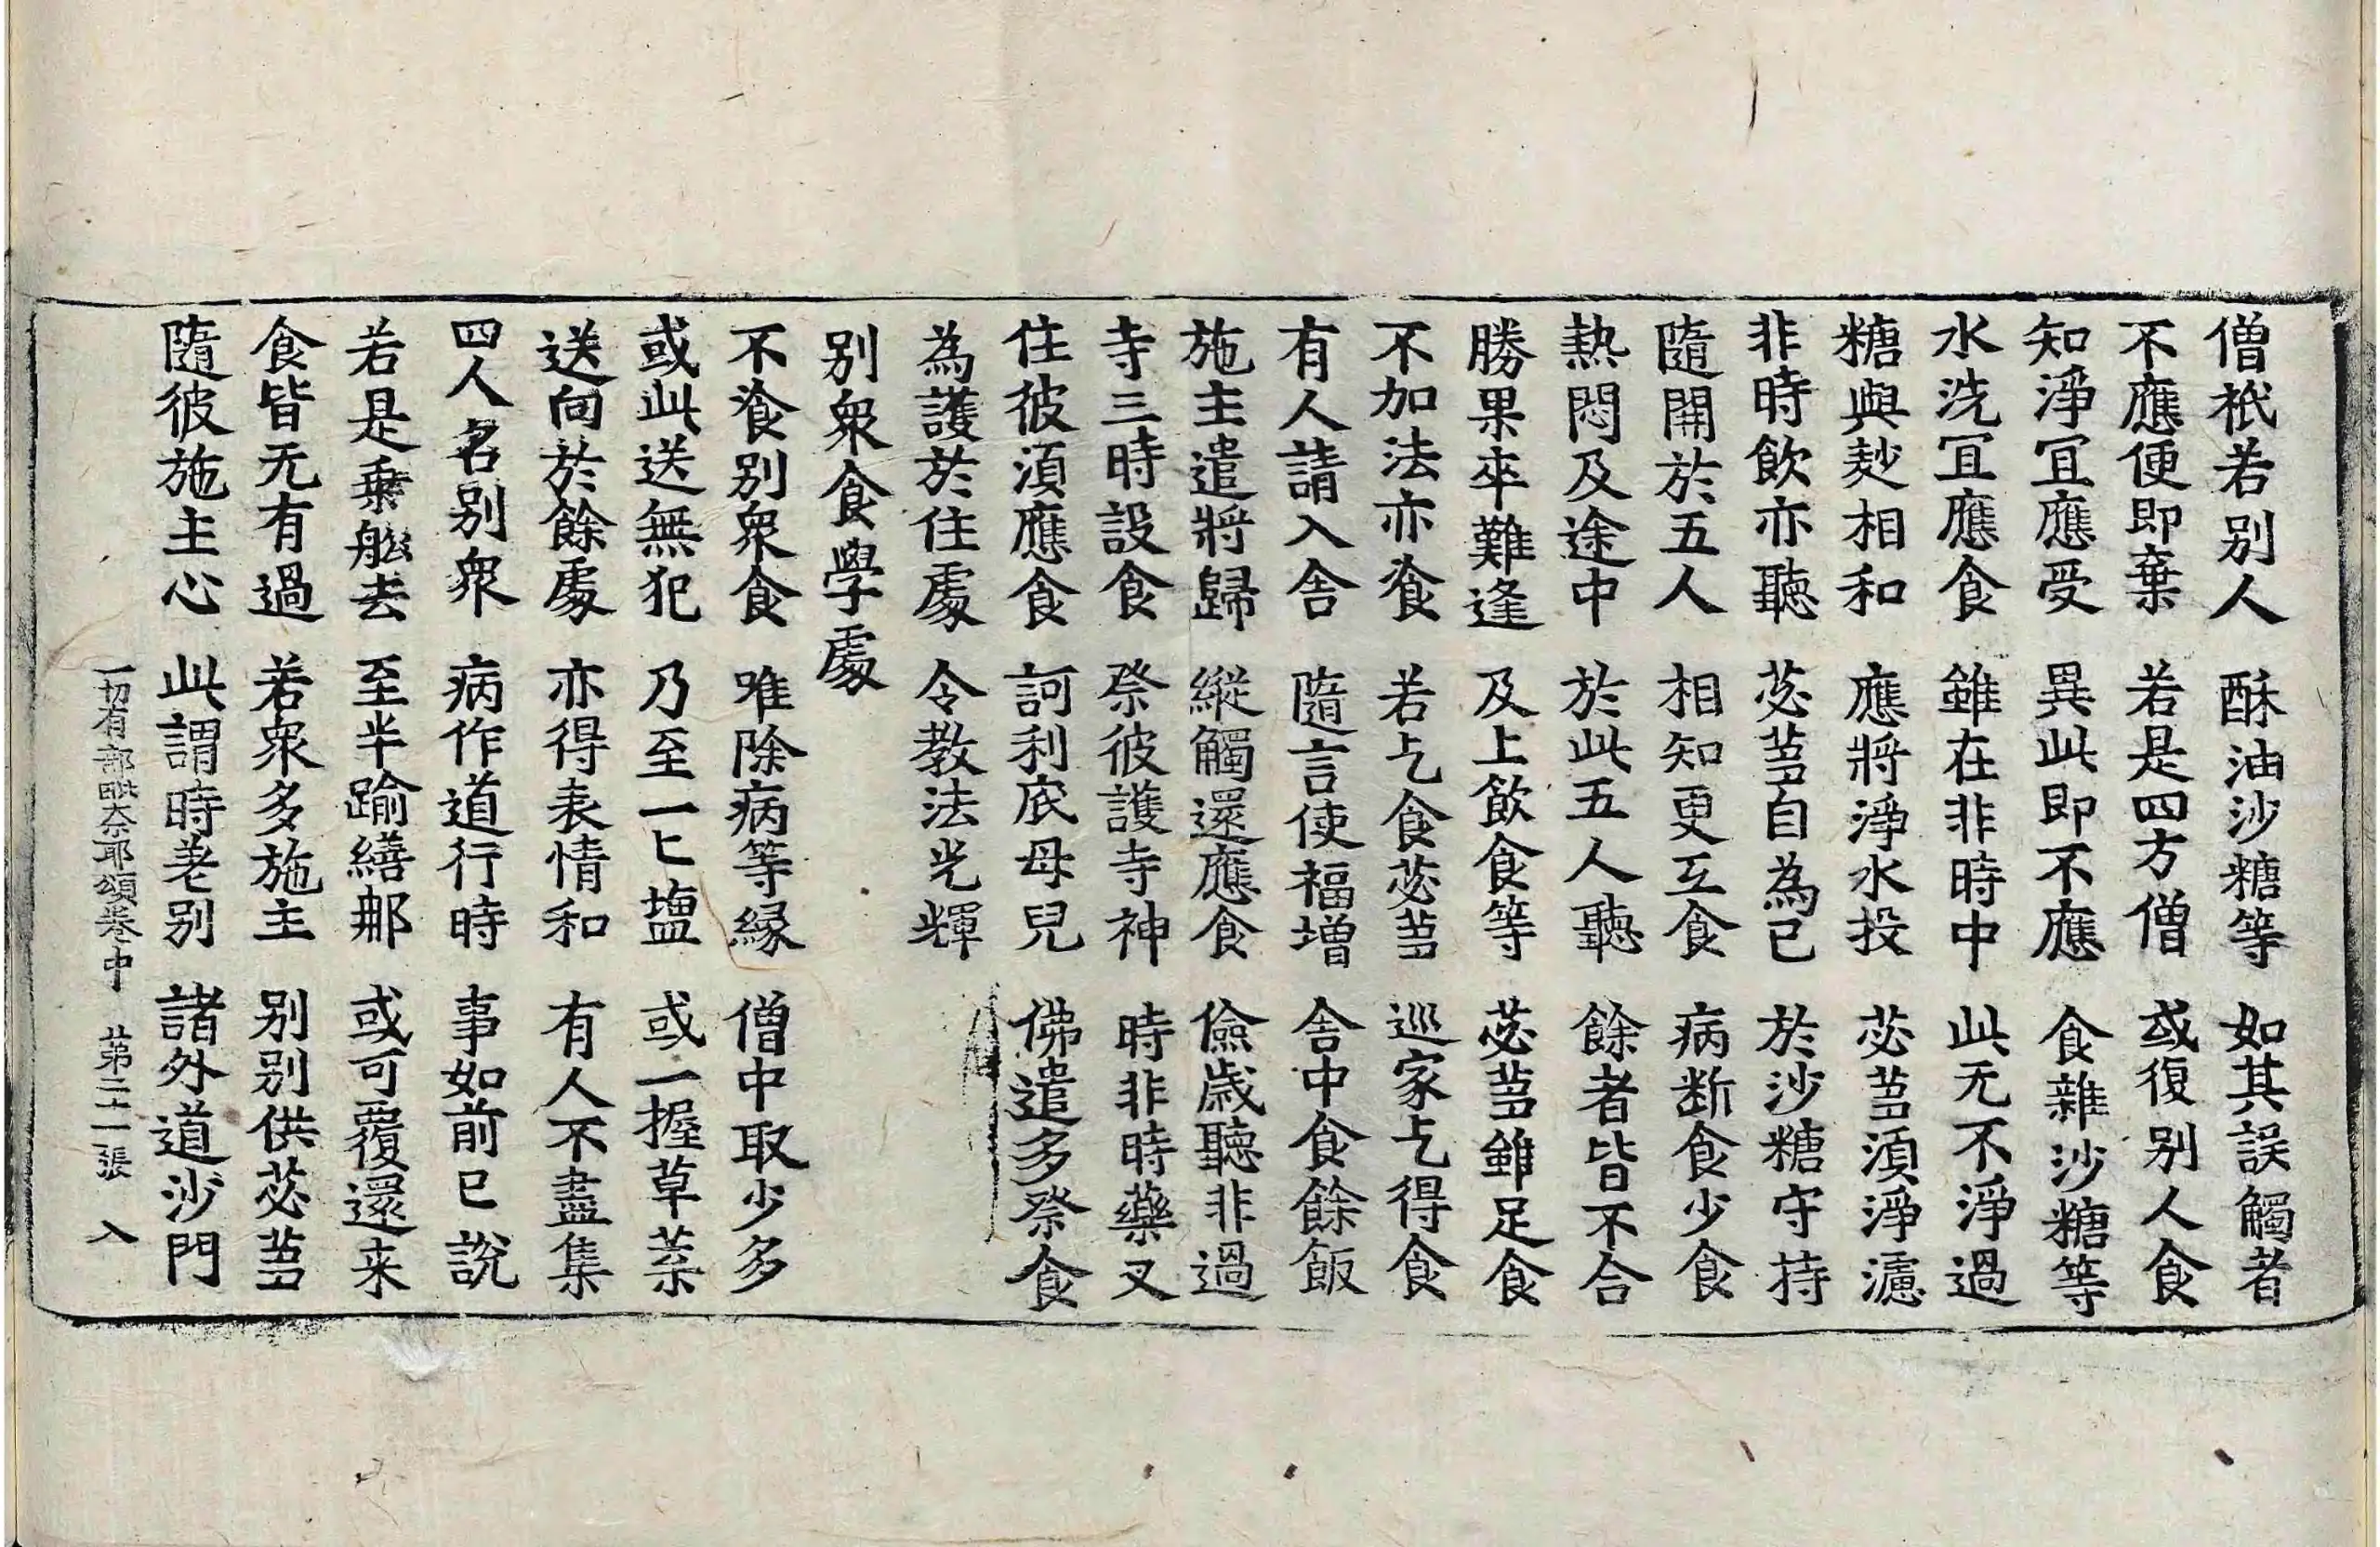 僧祇若別人　酥油沙糖等　如其誤觸者
不應便即棄　若是四方僧　或復別人食
知淨宜應受　異此即不應　食雜沙糖等
水洗宜應食　雖在非時中　此无不淨過
糖與麨相和　應將淨水投　苾芻須淨濾
非時飲亦聽　苾芻自為己　於沙糖守持
隨開於五人　相知更互食　病斷食少食
熱悶及途中　於此五人聽　餘者皆不合
勝果卒難逢　及上飲食等　苾芻雖足食
不加法亦飡　若乞食苾芻　巡家乞得食
有人請入舍　隨言使福增　舍中食餘飯
施主遣將歸　縱觸還應食　儉歲聽非過
寺三時設食　祭彼護寺神　時非時藥叉
住彼須應食　訶利底母兒　佛遣多祭食
為護於住處　令教法光輝
別衆食學處
不飡別衆食　唯除病等縁　僧中取少多
或此送無犯　乃至一匕塩　或一握草菜
送向於餘處　亦得表情和　有人不盡集
四人名別衆　病作道行時　事如前已說
若是乗舩去　至半踰繕那　或可覆還来
食皆无有過　若衆多施主　別別供苾芻
隨彼施主心　此謂時差別　諸外道沙門
一切有部毗奈耶頌卷中　第二十一張　入